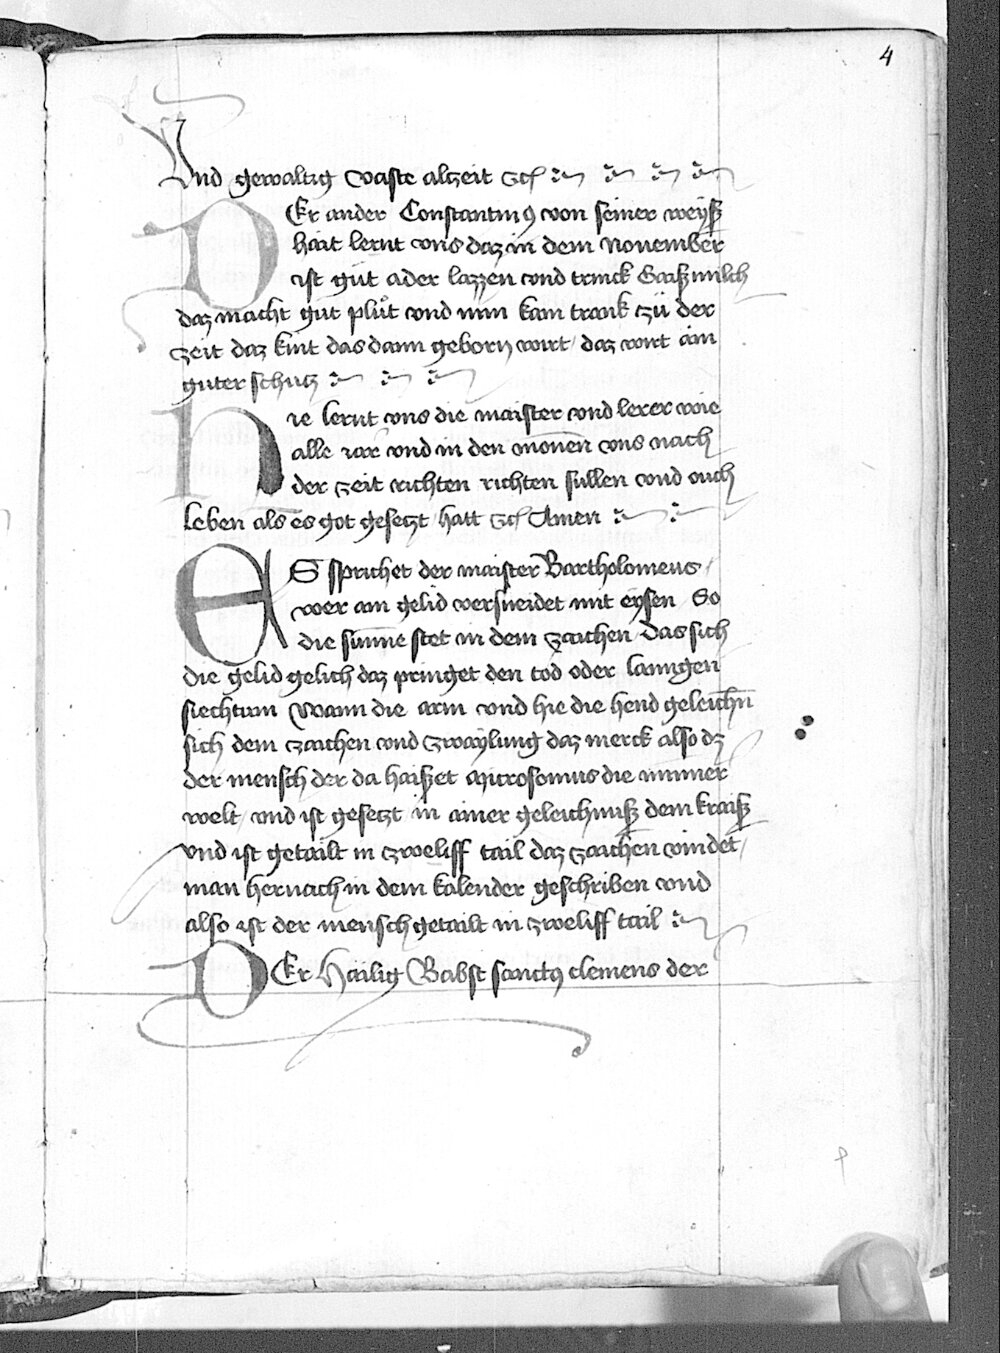 4
Und gewaltig vaste alzeit ꝛcͣ
DEr ander Constantinꝰ von seiner weyß
hait lernt vns daz in dem nouember
ist gůt ader lazzen vnd trinck Gaißmilch
daz macht gůt plůt vnd nim kain trank zů der
zeit daz kint das dann geborn wirt / daz wirt ain
guter schutz
HIe lernt vns die maister vnd lerer wie
alle iar vnd in den monen vns nach
der zeit richten richten sullen vnd ouch
leben als es got gesetzt hatt ꝛcͣ Amen
ES sprichet der maister Bartholomeus /
wer ain gelid versneidet mit eysen So
die sunne stet in dem zaichen das sich
die gelid gelich daz pringet den tod oder lanngen
siechtum Wann die arm vnd hie die hend geleichn̄
sich dem zaichen vnd zwaylung daz merck also dz
der mensch der da haisset microsomus die minner
welt / vnd ist gesetzt in ainer geleichnuß dem kraiß
vnd ist getailt in zweliff tail daz zaichen vindet /
man hernach in dem kalender geschriben vnd
also ist der mensch getailt in zweliff tail
DEr Hailig Babst sanctꝰ clemens der